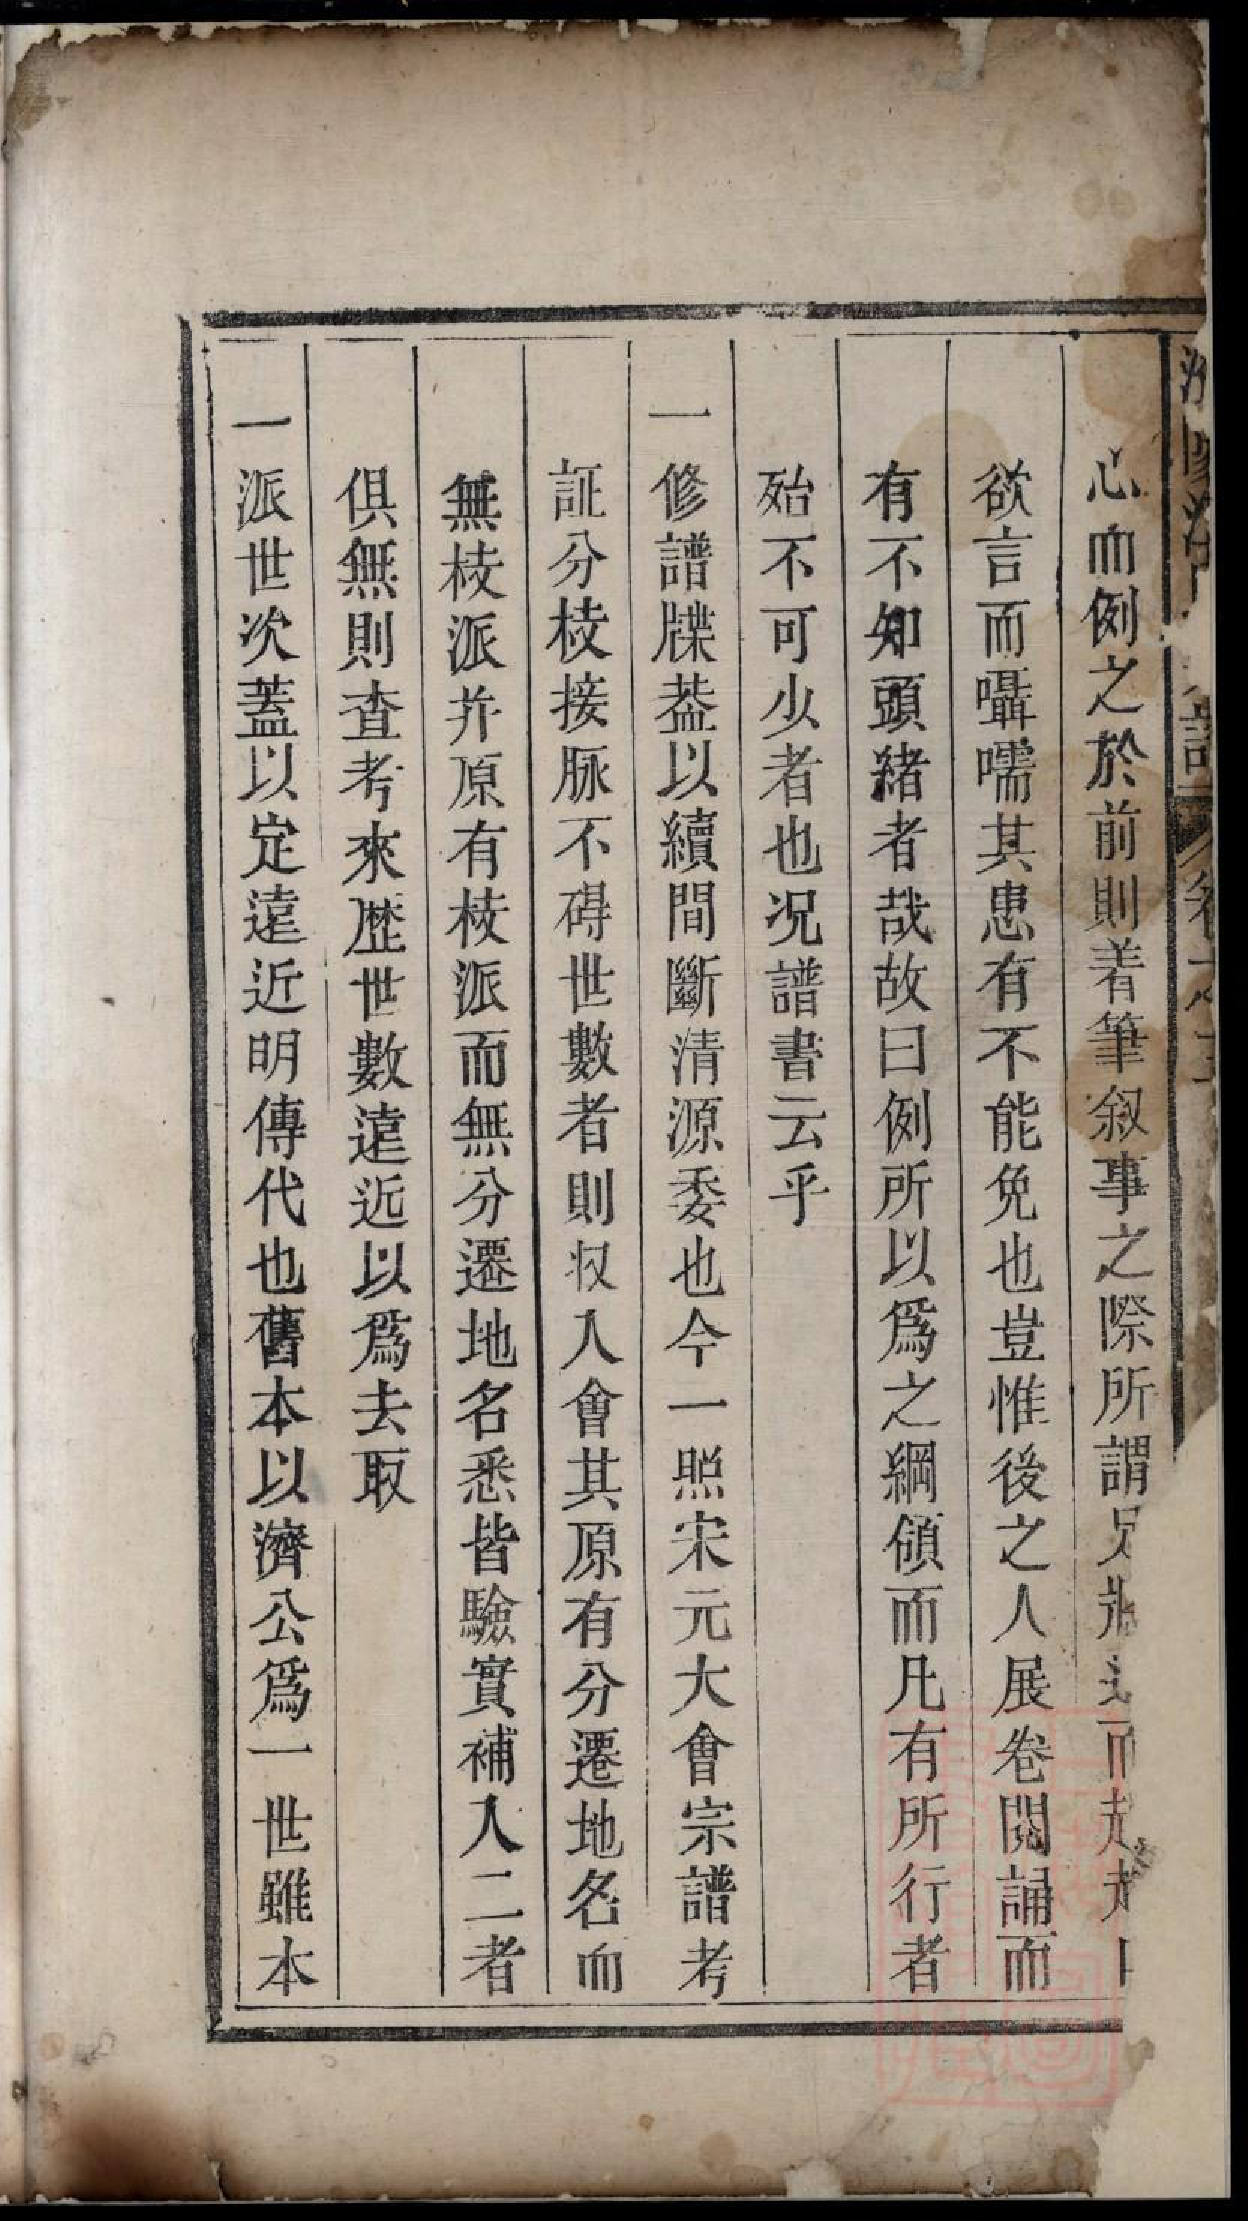 心而例之於前則着筆叙事之際所謂足將進而趑趄口
欲言而囁嚅其患有不能免也豈惟後之人展卷閱誦而
有不知頭緒者哉故曰例所以爲之綱領而凡有所行者
殆不可少者也况譜書云乎
一修譜牒葢以續間斷清源委也今一照宋元大會宗譜考
証分棱接脉不碍世數者則収入會其原有分遷地名而
無棱派并原有棱派而無分遷地名悉皆驗實補入二者
俱無則查考來歷世數遠近以爲去取
一派世次蓋以定遠近明傳代也舊本以濟公爲一世雖本